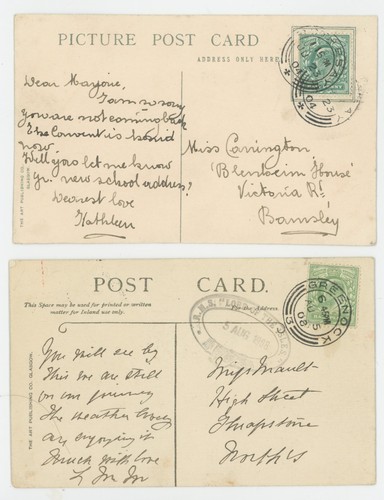 PICTURE POST CARD
ADDRESS ONLY HERE
Dear Marjorie,
I am so sorry
You are not coming back
The Convent is horrid
now
Will you let me know
yr. new school address?
Dearest love
Kathleen
Miss Carrington
'Blenheim House'
Victoria Rd.
Barnsley
THE ART PUBLISHING CO. GLASGOW
23
04
POST CARD.
This Space may be used for printed or written
matter for Inland use only.
For the Address.
You will see by
This we are still
on our journey
The weather
are enjoying it
Much with love
THE ART PUBLISHING CO. GLASGOW.
R.M.S. "LORD OF THE ISLES"
5 AUG
GREENOCK
6 PM
AU 5
06
3
Miss Mault
High Street
Thrapston
North's